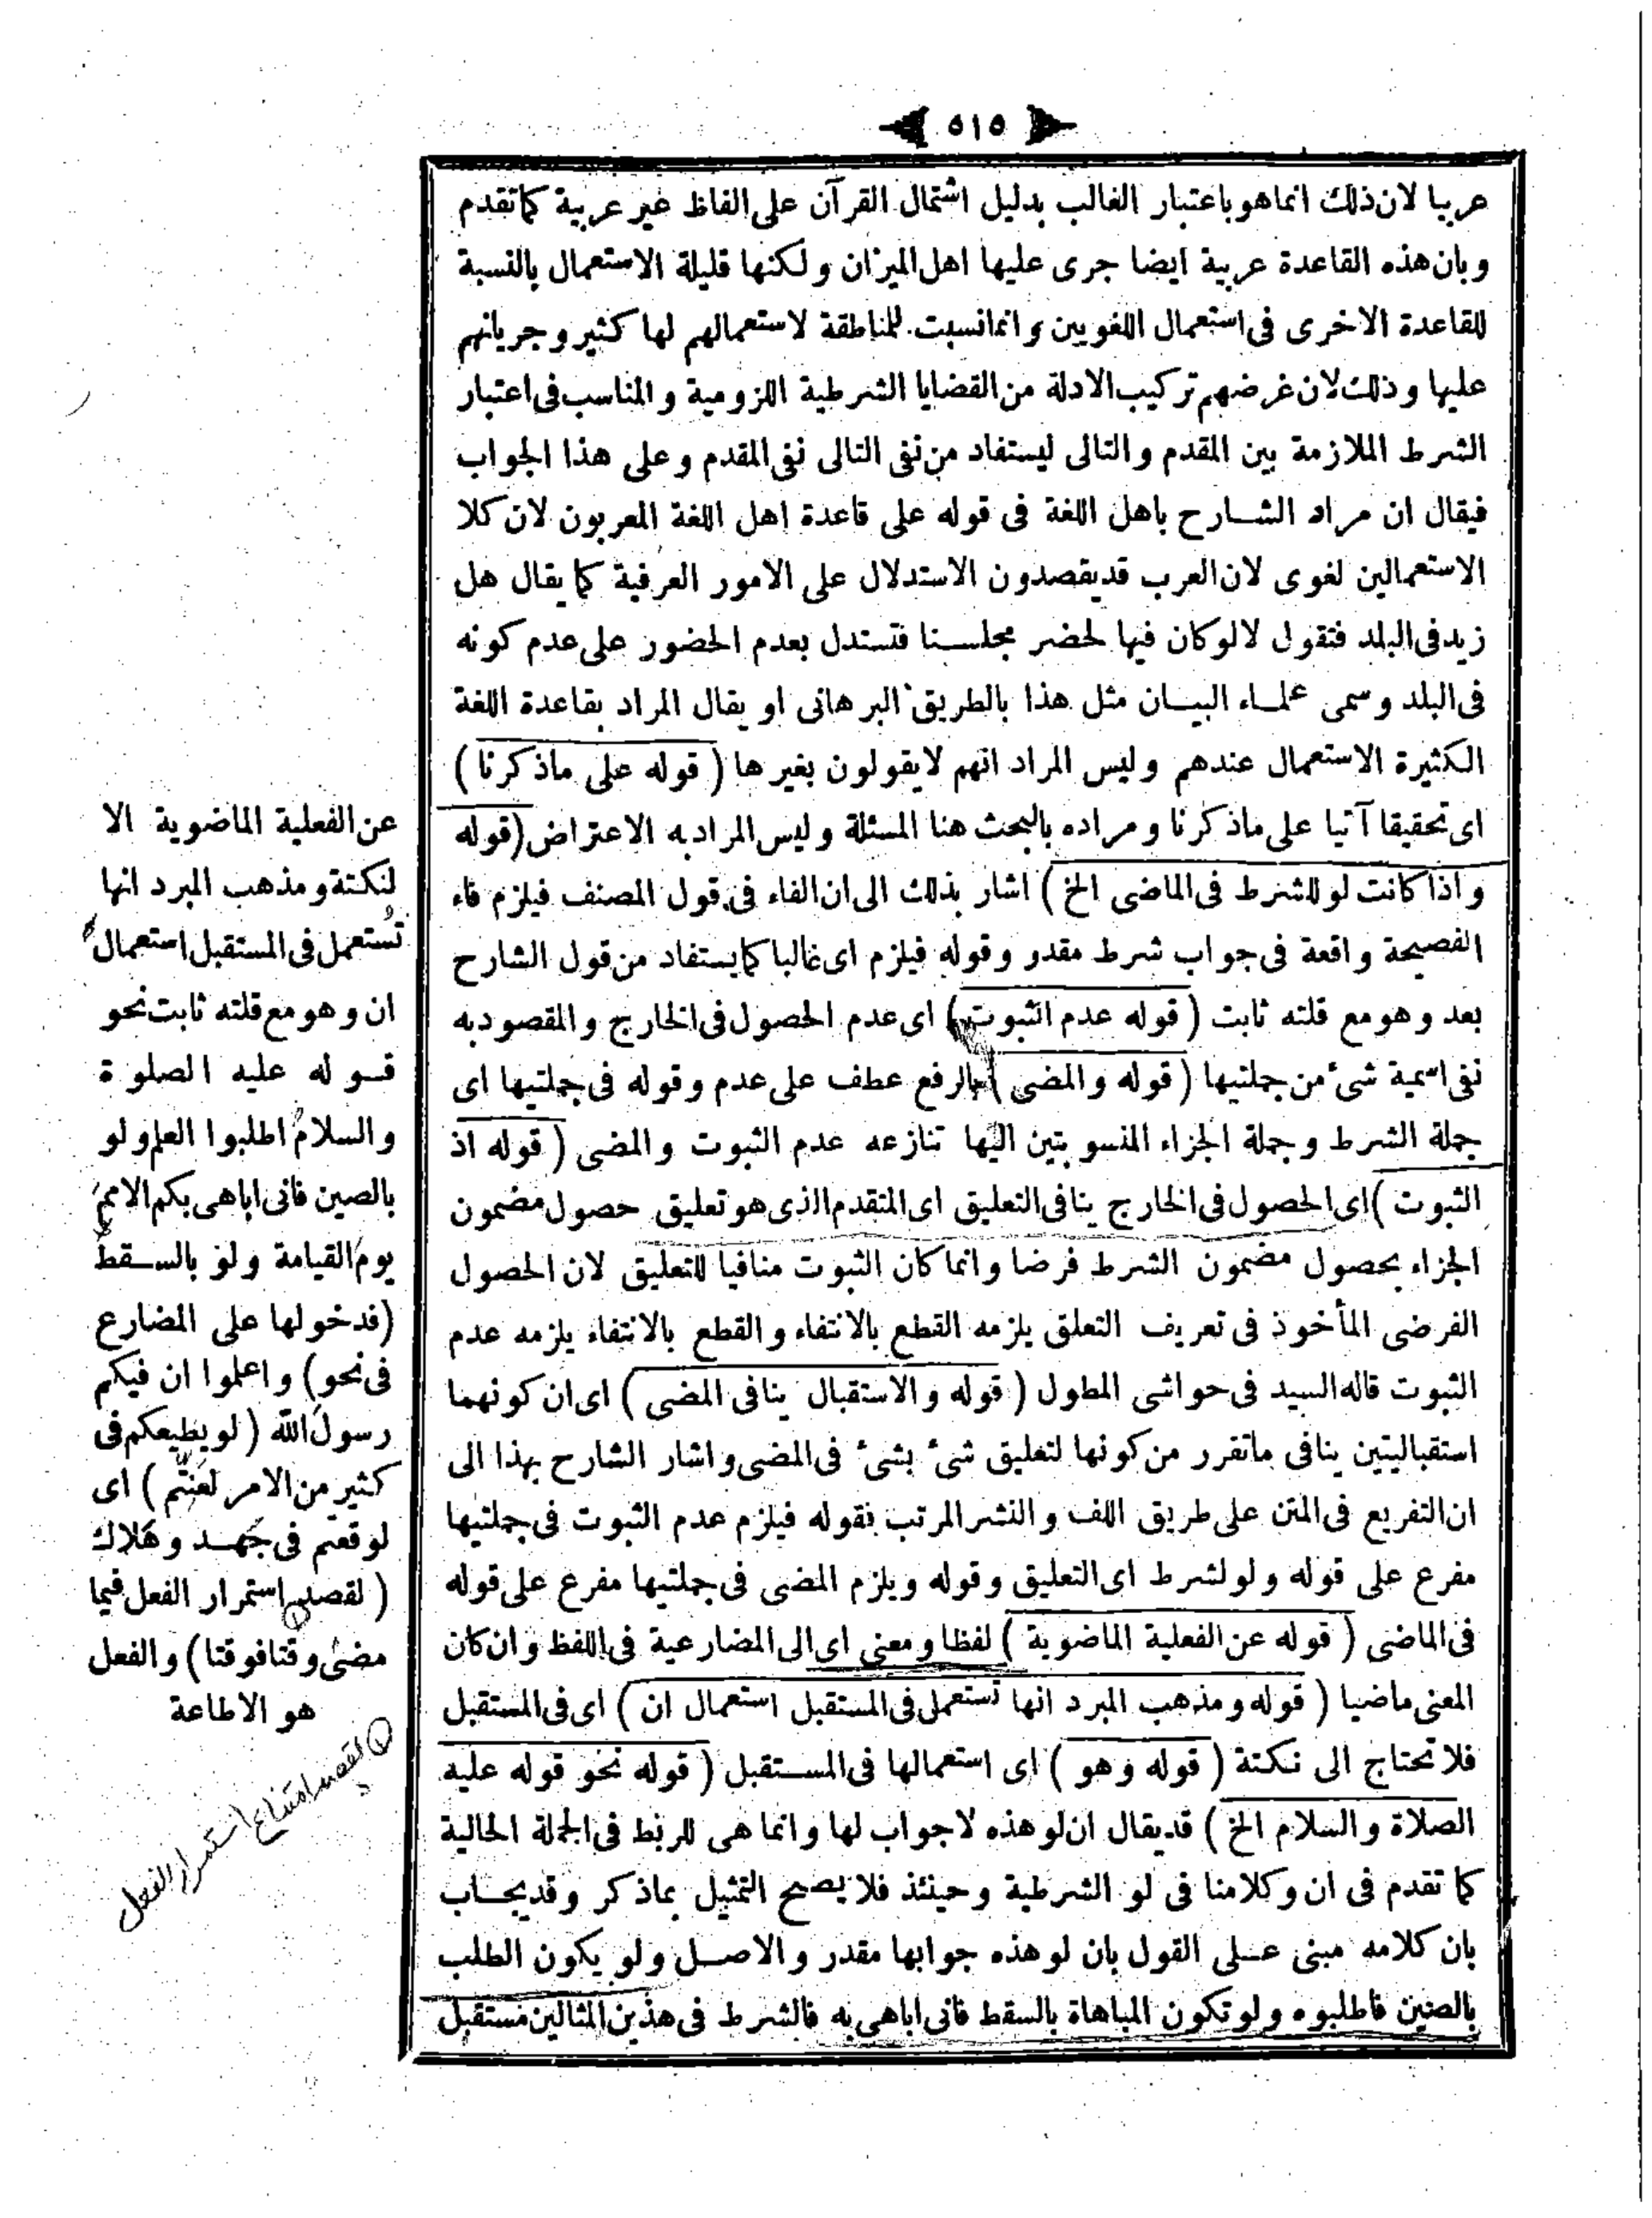 ٥١٥
عربيا لان ذلك انما هو باعتبار الغالب بدليل اشتمال القرآن على الفاظ غير عربية كما تقدم
وبان هذه القاعدة عربية ايضا جرى عليها اهل الميزان ولكنها قليلة الاستعمال بالنسبة
للقاعدة الاخرى فى استعمال اللغويين وانما نسبت للمناطقة لاستعمالهم لها كثير وجريانهم
عليها وذلك لان غرضهم تركيب الادلة من القضايا الشرطية اللزومية والمناسب فى اعتبار
الشرط الملازمة بين المقدم والتالى ليستفاد من نفى التالى نفى المقدم وعلى هذا الجواب
فيقال ان مراد الشارح باهل اللغة فى قوله على قاعدة اهل اللغة المعربون لان كلا
الاستعمالين لغوى لان العرب قد يقصدون الاستدلال على الامور العرفية كما يقال هل
زيد فى البلد فتقول لا لو كان فيها لحضر مجلسنا فتستدل بعدم الحضور على عدم كونه
فى البلد وسمى علماء البيان مثل هذا بالطريق البرهانى او يقال المراد بقاعدة اللغة
الكثيرة الاستعمال عندهم وليس المراد انهم لا يقولون بغيرها ( قوله على ماذكرنا )
اى تحقيقا آتيا على ماذكرنا ومراده بالبحث هنا المسئلة وليس المراد به الاعتراض (قوله
واذا كانت لو للشرط فى الماضى الخ ) اشار بذلك الى ان الفاء فى قول المصنف فيلزم فاء
الفصيحة واقعة فى جواب شرط مقدر وقوله فيلزم اى غالبا كما يستفاد من قول الشارح
بعد وهو مع قلته ثابت ( قوله عدم الثبوت ) اى عدم الحصول فى الخارج والمقصود به
نفى اسمية شىء من جملتيها ( قوله والمضى ) بالرفع عطف على عدم وقوله فى جملتيها اى
جملة الشرط وجملة الجزاء المنسوبتين اليها تنازعه عدم الثبوت والمضى ( قوله اذ
الثبوت ) اى الحصول فى الخارج ينافى التعليق اى المتقدم الذى هو تعليق حصول مضمون
الجزاء بحصول مضمون الشرط فرضا وانما كان الثبوت منافيا للتعليق لان الحصول
الفرضى المأخوذ فى تعريف التعلق يلزمه القطع بالانتفاء والقطع بالانتفاء يلزمه عدم
الثبوت قاله السيد فى حواشى المطول ( قوله والاستقبال ينافى المضى ) اى ان كونهما
استقباليتين ينافى ماتقرر من كونها لتعليق شىء بشىء فى المضى واشار الشارح بهذا الى
ان التفريع فى المتن على طريق اللف والنشر المرتب فقوله فيلزم عدم الثبوت فى جملتيها
مفرع على قوله ولو لشرط اى التعليق وقوله ويلزم المضى فى جملتيها مفرع على قوله
فى الماضى ( قوله عن الفعلية الماضوية ) لفظا ومعنى اى الى المضارعية فى اللفظ وان كان
المعنى ماضيا ( قوله ومذهب المبرد انها تستعمل فى المستقبل استعمال ان ) اى فى المستقبل
فلا تحتاج الى نكتة ( قوله وهو ) اى استعمالها فى المستقبل ( قوله نحو قوله عليه
الصلاة والسلام الخ ) قد يقال ان لو هذه لا جواب لها وانما هى للربط فى الجملة الحالية
كما تقدم فى ان وكلامنا فى لو الشرطية وحينئذ فلا يصح التمثيل بماذكر وقد يجاب
بان كلامه مبنى على القول بان لو هذه جوابها مقدر والاصل ولو يكون الطلب
بالصين فاطلبوه ولو تكون المباهاة بالسقط فانى اباهى به فالشرط فى هذين المثالين مستقبل
عن الفعلية الماضوية الا
لنكتة ومذهب المبرد انها
تُستعمل فى المستقبل استعمال
ان وهو مع قلته ثابت نحو
قوله عليه الصلوة
والسلام اطلبوا العلم ولو
بالصين فانى اباهى بكم الامم
يوم القيامة ولو بالسقط
(فدخولها على المضارع
فى نحو) واعلموا ان فيكم
رسول الله ( لو يطيعكم فى
كثير من الامر لعَنتّم ) اى
لوقعتم فى جَهد وهَلاك
( لقصد استمرار الفعل فيما
مضى وقتا فوقتا) والفعل
هو الاطاعة
١ لقصد امتناع استمرار الفعل